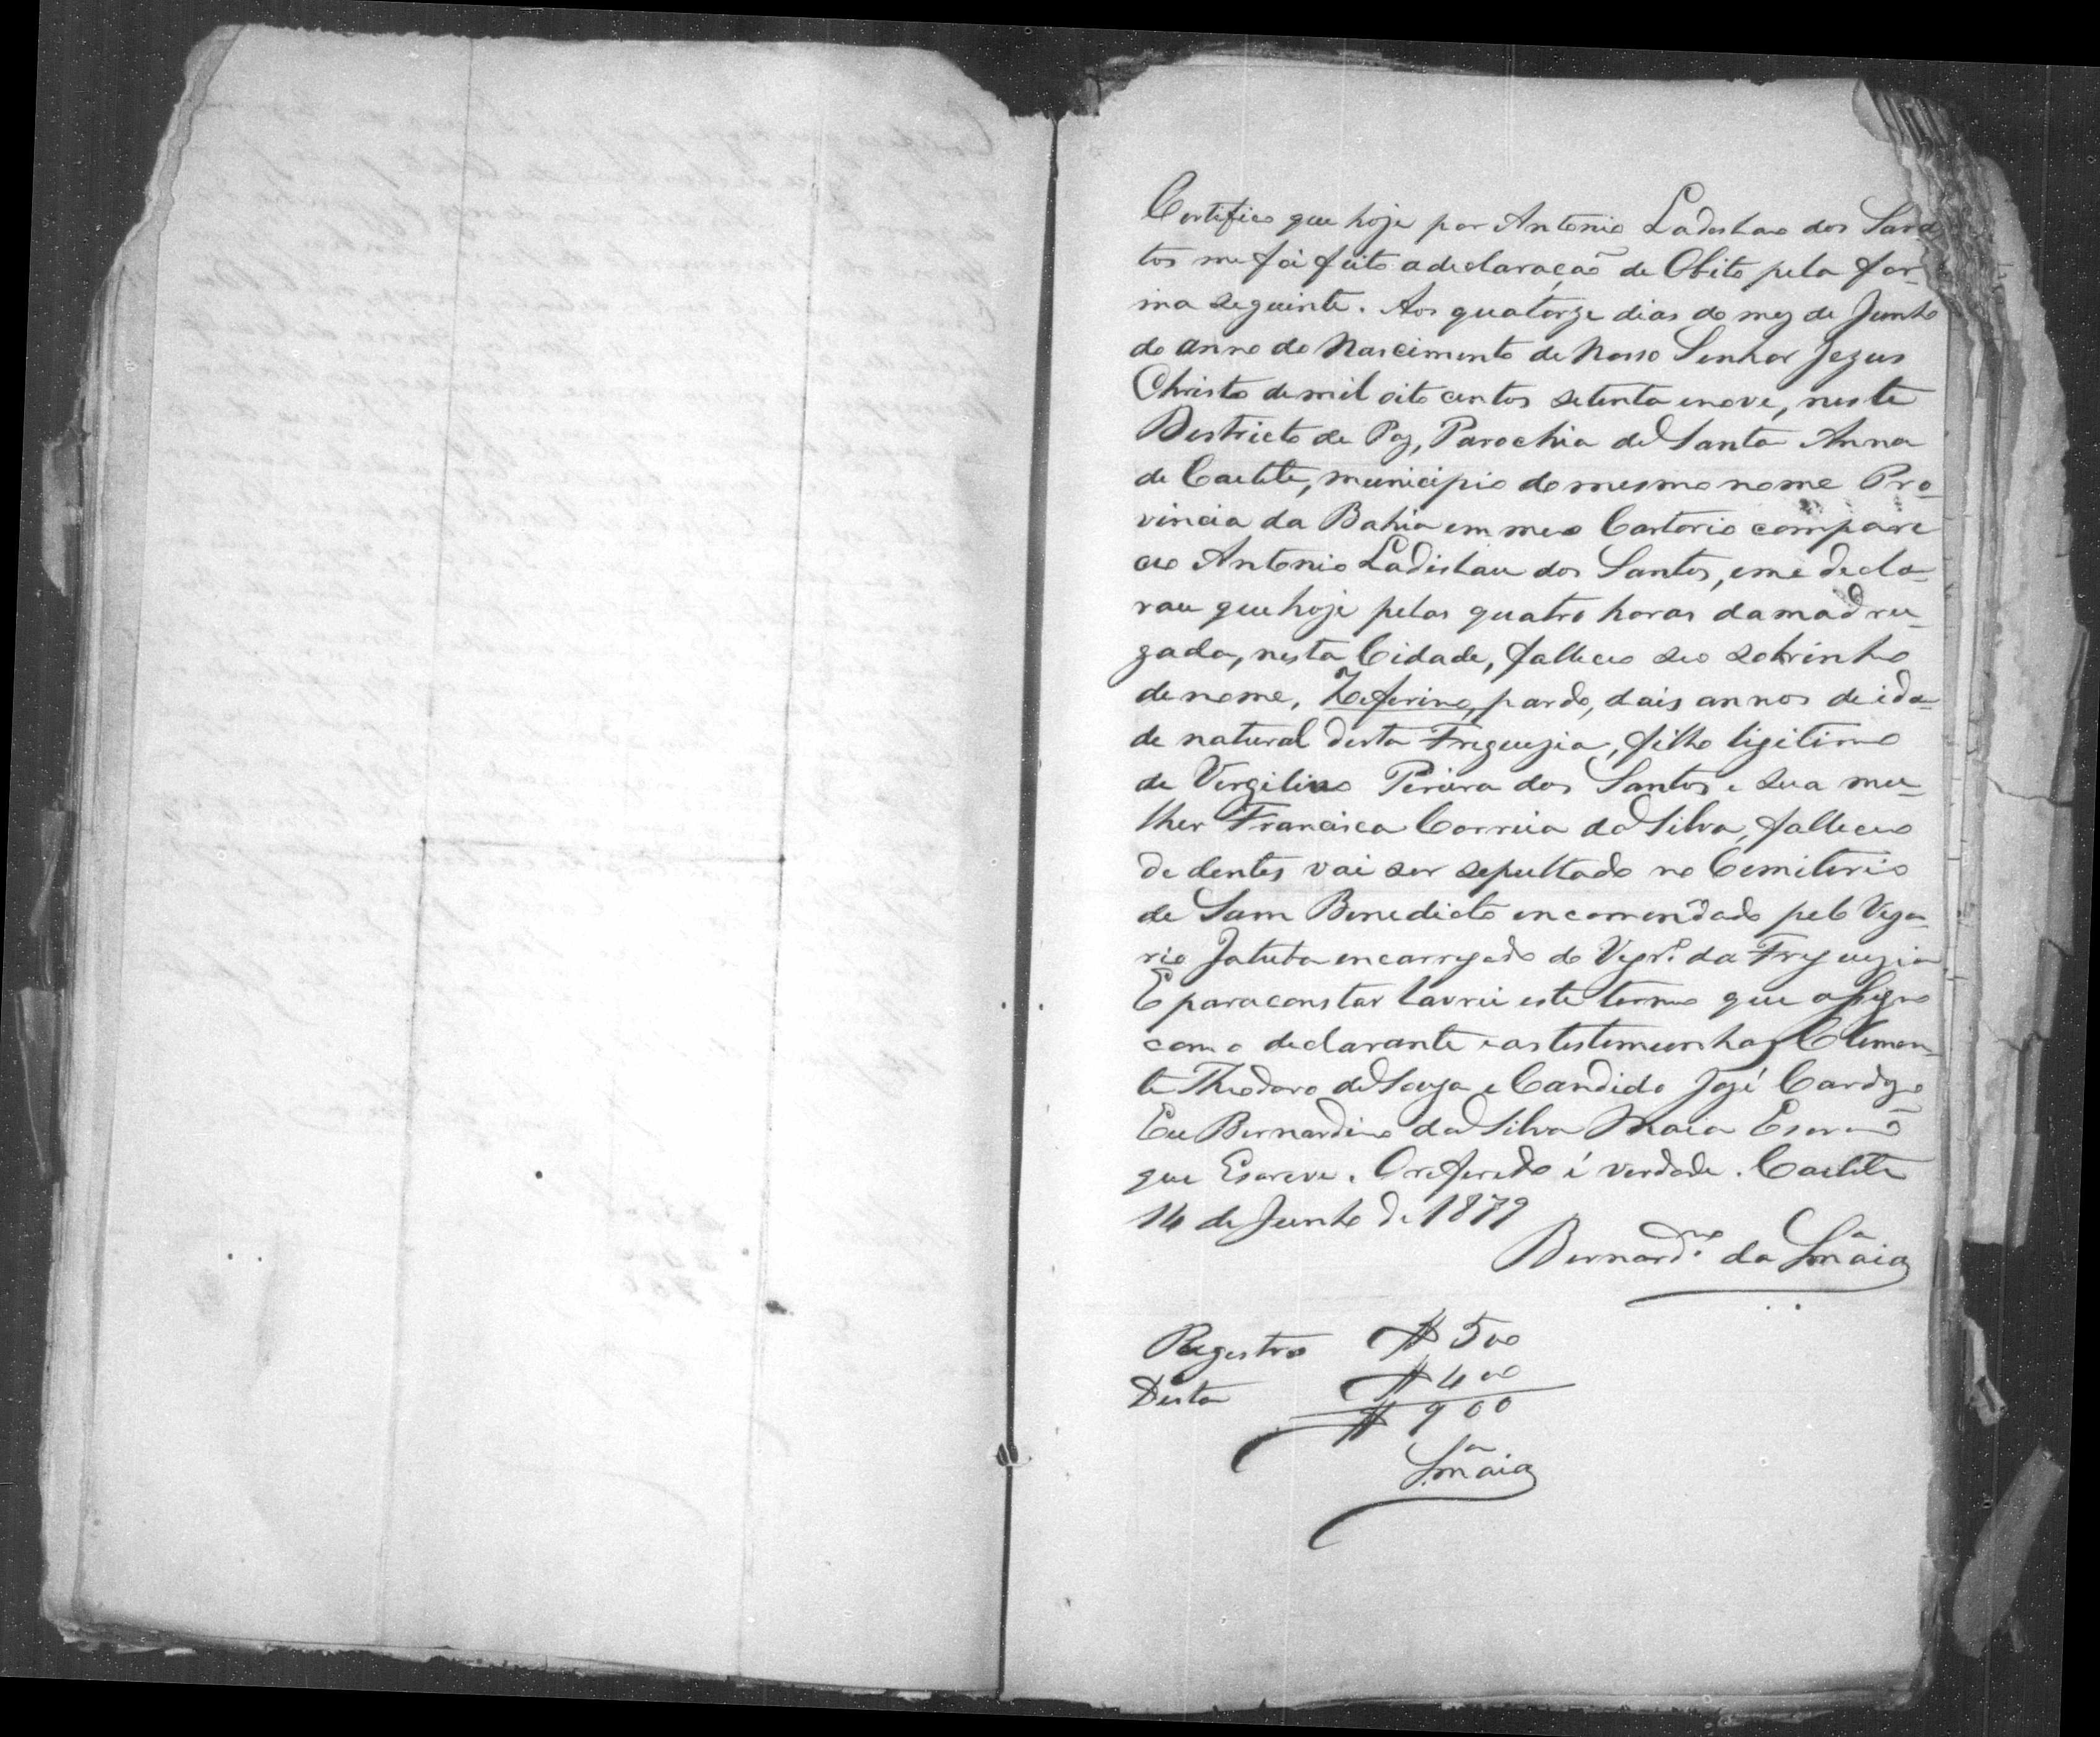 Certifico que hoje por Antonio Ladeslao dos San
tos me foi feito a declaração de Obito pela for-
ma seguinte. Aos quatorze dias do mez de Junho
do anno do Nascimento de Nosso Senhor Jezus
Christo de mil oito centos setenta enove, neste
Destricto de Paz, Parochia de Santa Anna
de Caetete, municipio do mesmo nome Pro-
vincia da Bahia em meo Cartorio compare
ceo Antonio Ladislau dos Santos, eme decla-
rau que hoje pelas quatro horas da madru-
gada, nesta Cidade, falleceo seo sobrinho
de nome, Zeferino, pardo, dois annos de ida-
de natural desta Freguezia, filho ligitimo
de Vergilino Pereira dos Santos e sua mu-
lher Francisca Correia da Silva, falleceo
de dentes vai ser sepultado no Cemiterio
de Sam Benedicto encomendado pelo Viga-
rio encarregado da Freguezia
E para constar lavrei este termo que assigno
com o declarante e as testemunhas Clemen-
te Theodoro de Souza e Candido José Cardozo
Eu Bernardino da Silva Maia Escrivão
que Escreve. O referido é verdade. Caetete
14 de Junho de 1879
Bernard.no da S.a Maia
Registro $ 500
Desta $ 400
$ 900
S.a Maia